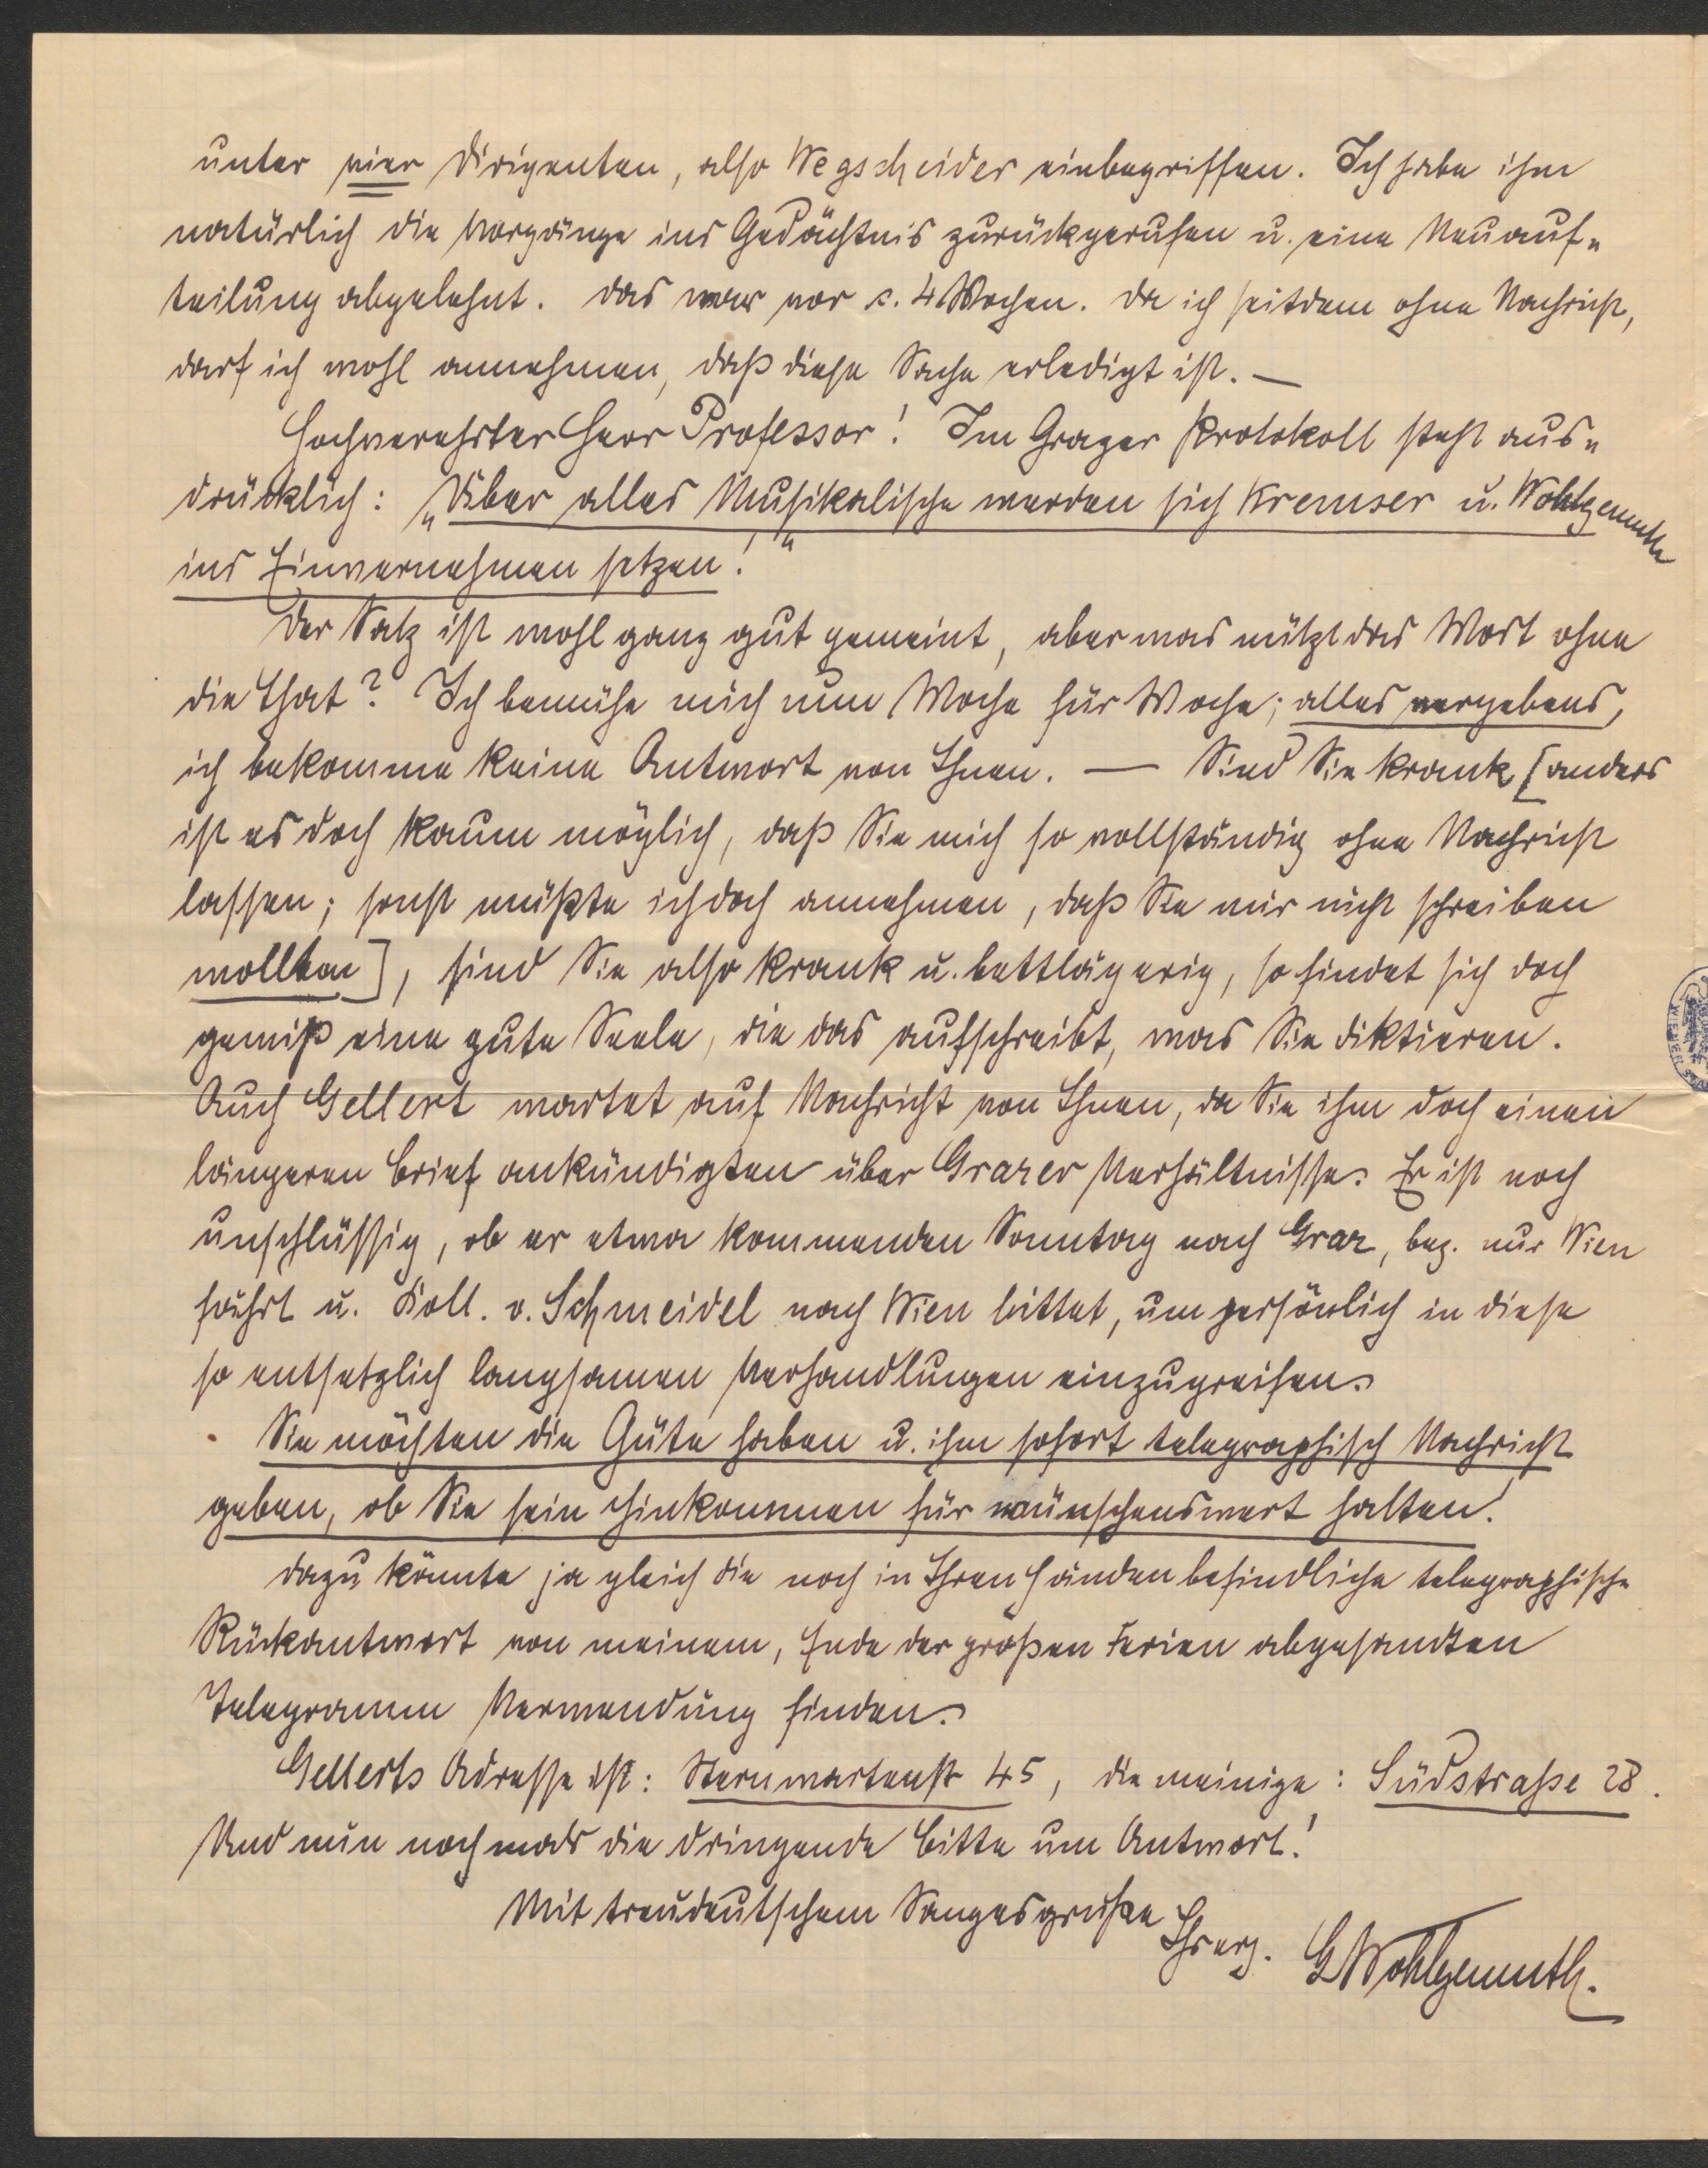 unter vier Dirigenten, also Wegscheider einbegriffen. Ich habe ihm
natürlich die Vorgänge ins Gedächtnis zurückgerufen u. eine Neuauf-
teilung abgelehnt. Das war vor c. 4 Wochen. Da ich seitdem ohne Nachricht,
darf ich wohl annehmen, daß diese Sache erledigt ist. —
Hochverehrter Herr Professor! Im Grazer Protokoll steht aus-
drücklich: „Über alles Musikalische werden sich Kremser u. Wohlgemuth
ins Einvernehmen setzen!"
Der Satz ist wohl ganz gut gemeint, aber was nützt das Wort ohne
die That? Ich bemühe mich nun Woche für Woche; alles vergebens,
ich bekomme keine Antwort von Ihnen. — Sind Sie krank [anders
ist es doch kaum möglich, daß Sie mich so vollständig ohne Nachricht
lassen; sonst müßte ich doch annehmen, daß Sie mir nicht schreiben
wollten], sind Sie also krank u. bettlägerig, so findet sich doch
gewiß eine gute Seele, die das aufschreibt, was Sie diktieren.
Auch Gellert wartet auf Nachricht von Ihnen, da Sie ihm doch einen
längeren Brief ankündigten über Grazer Verhältnisse. Er ist noch
unschlüssig, ob er etwa kommenden Sonntag nach Graz, bez. nur Wien
fährt u. Koll. v. Schmeidel nach Wien bittet, um persönlich in diese
so entsetzlich langsamen Verhandlungen einzugreifen.
Sie möchten die Güte haben u. ihm sofort telegraphisch Nachricht
geben, ob Sie sein Hinkommen für wünschenswert halten!
Dazu könnte ja gleich die noch in Ihren Händen befindliche telegraphische
Rückantwort von meinem, Ende der großen Ferien abgesandten
Telegramm Verwendung finden.
Gellerts Adresse ist: Sternwartenstr 45, die meinige: Südstraße 28.
Und nun nochmals die dringende Bitte um Antwort!
Mit treudeutschem Sangesgruße
Ihr erg. GWohlgemuth.